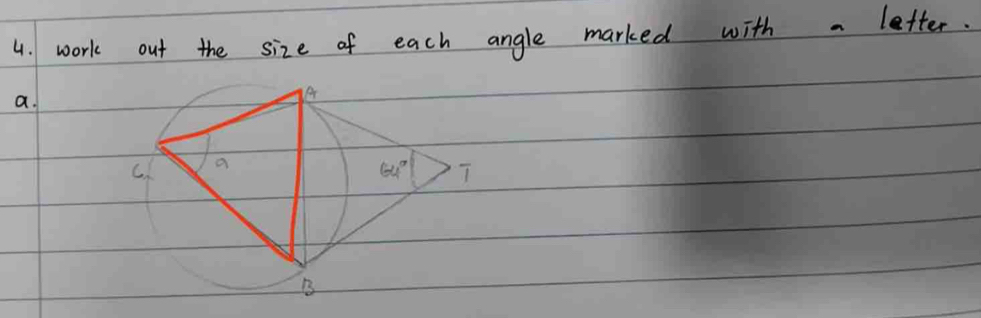 4. work out the size of each angle marked with a letter.
a.
A
C
a
64°
T
B